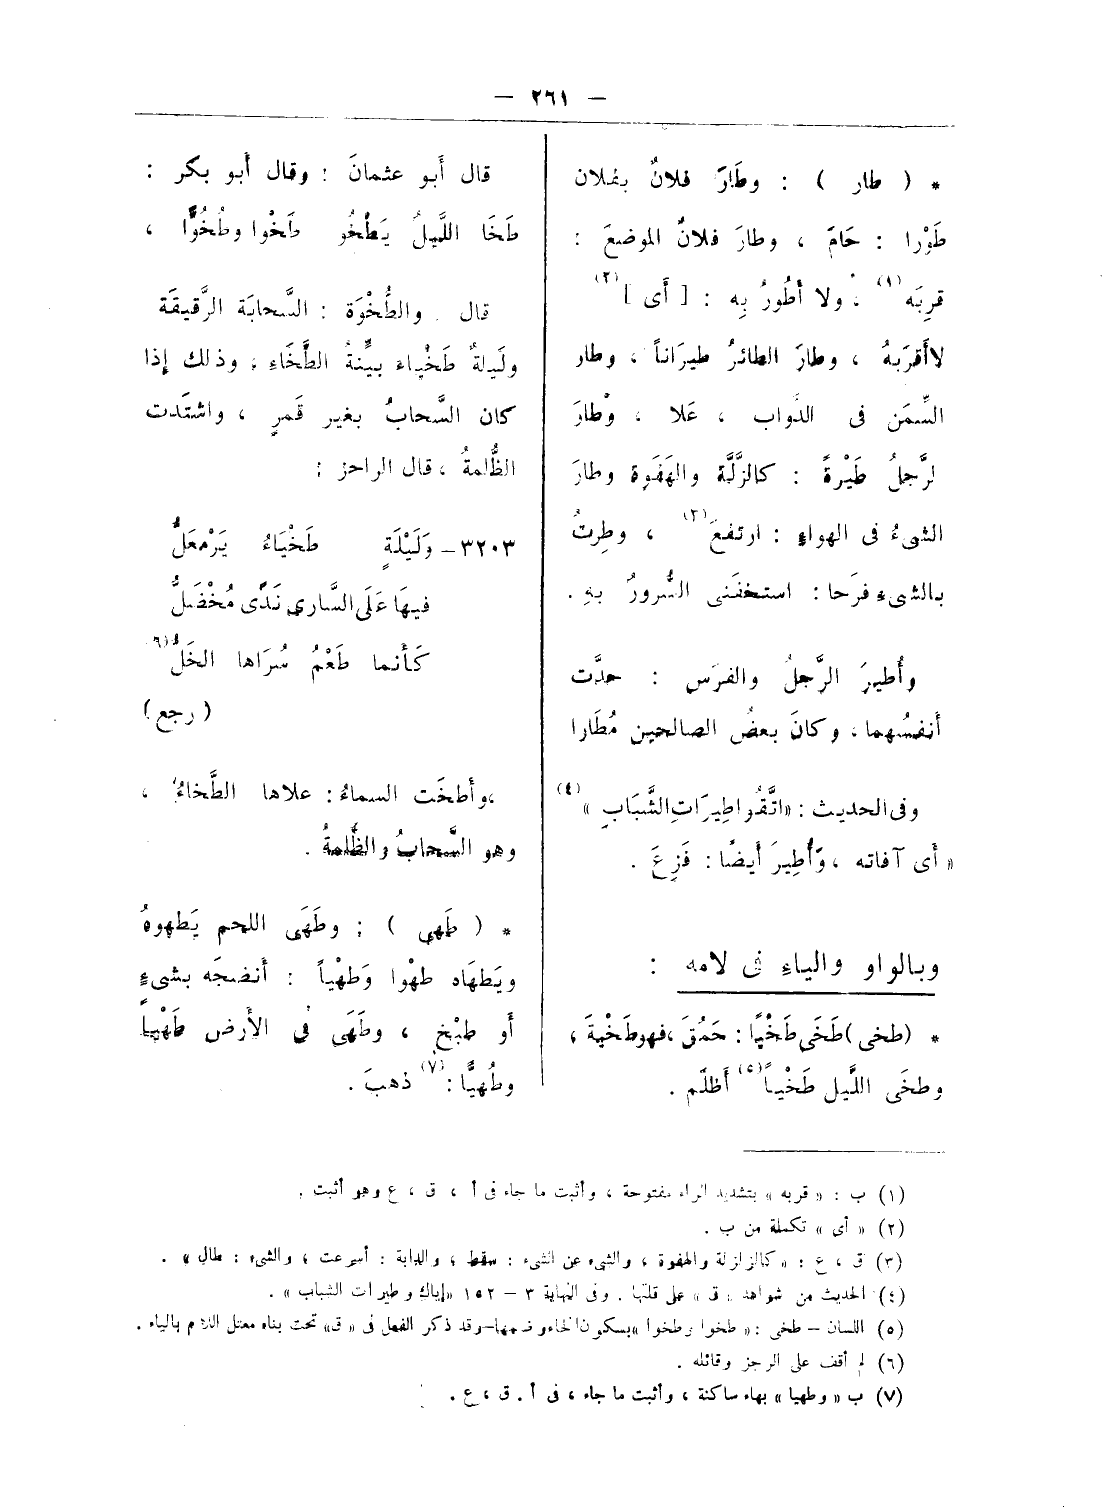 — ٢٦١ —
* ( طار ) : وطَارَ فلانٌ بفلان
طَوْرا : حَامَ ، وطارَ فلانٌ الموضعَ :
قرِبَه (١) ، ولا أَطُورُ بِه : [ أَى ] (٢)
لا أَقرَبهُ ، وطارَ الطائرُ طيرَاناً ، وطار
السِّمَن فى الدَّواب ، عَلا ، وطَارَ
لرَّجلُ طَيْرةً : كالزَّلَّة والهَفوة وطارَ
الشىءُ فى الهواءِ : ارتفعَ (٣) ، وطِرتُ
بالشىءِ فرَحا : استخفَنى السُّرورُ بهِ .
وأُطيرَ الرَّجلُ والفرَس : حدَّت
أنفسُهما ، وكانَ بعضُ الصالحين مُطَارا
وفى الحديث : «اتَّقُوا طِيرَاتِ الشَّبَابِ » (٤)
« أَى آفاته ، وَأُطِيرَ أَيضًا : فَزِعَ .
وبالواو والياءِ فى لامه :
* (طخى) طَخَى طَخْيًا : حَمُقَ ، فهو طَخْيةَ ،
وطخَى اللَّيل طَخْياً (٥) أَظلَم .
قال أَبو عثمانَ : وقال أَبو بكر :
طَخَا اللَّيلُ يَطخُو طَخْوا وطُخُوًّا ،
قال . والطُّخْوَة : السَّحابَة الرَّقيقَة
ولَيلةٌ طَخْياء بيِّنةُ الطَّخَاءِ ، وذلك إذا
كان السَّحابُ بغير قَمرٍ ، واشتَدت
الظُّلمةُ ، قال الراجز :
٣٢٠٣– وَلَيْلَةٍ طَخْيَاءُ يَرْمعَلُّ
فيهَا عَلَى السَّارِى نَدًى مُخْضَلُّ
كَأَنما طَعْمُ سُرَاها الخَلُّ (٦)
( رجع )
، وأَطخَت السماءُ : علاها الطَّخاءُ ،
وهو السَّحابُ والظُّلمةُ .
* ( طَهى ) : وطَهَى اللحم يَطهوهُ
ويَطهَاه طهْوا وَطهْياً : أَنضجَه بشىءٍ
أَو طبْخ ، وطَهَى فى الأَرض طَهْيا
وطُهيًّا : (٧) ذهبَ .
(١) ب : « قربه » بتشديد الراء مفتوحة ، وأثبت ما جاء فى أ ، ق ، ع وهو أثبت .
(٢) « أى » تكملة من ب .
(٣) ق ، ع : « كالزلزلة والهفوة ، والشىء عن الشىء : سقط ، والدابة : أسرعت ، والشىء : طال » .
(٤) الحديث من شواهد « ق » على قلتها . وفى النهاية ٣ – ١٥٢ «إياك وطيرات الشباب » .
(٥) اللسان – طخى : « طخوا وطخوا » بسكون الخاء وضمها–وقد ذكر الفعل فى « ق» تحت بناء معتل اللام بالياء .
(٦) لم أقف على الرجز وقائله .
(٧) ب « وطهيا » بهاء ساكنة ، وأثبت ما جاء ، فى أ . ق ، ع .